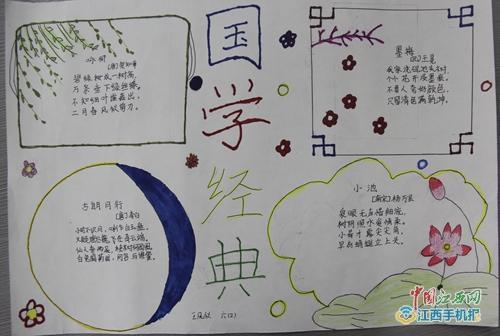 国学经典
咏柳
[唐]贺知章
一树高
万条垂下绿丝绦
不知细叶谁裁出
二月春风似剪刀
墨梅
[元]王冕
我家洗砚池头树
个个花开淡墨痕
不要人夸好颜色
只留清气满乾坤
古朗月行
[唐]李白
小时不识月,呼作白玉盘
又疑瑶台镜,飞在青云端
仙人垂两足,桂树何团团
白兔捣药成,问言与谁餐
小池
[南宋]杨万里
泉眼无声惜细流,
树阴照水爱晴柔。
小荷才露尖尖角,
早有蜻蜓立上头。
六(2)
中国江西网
江西手机报